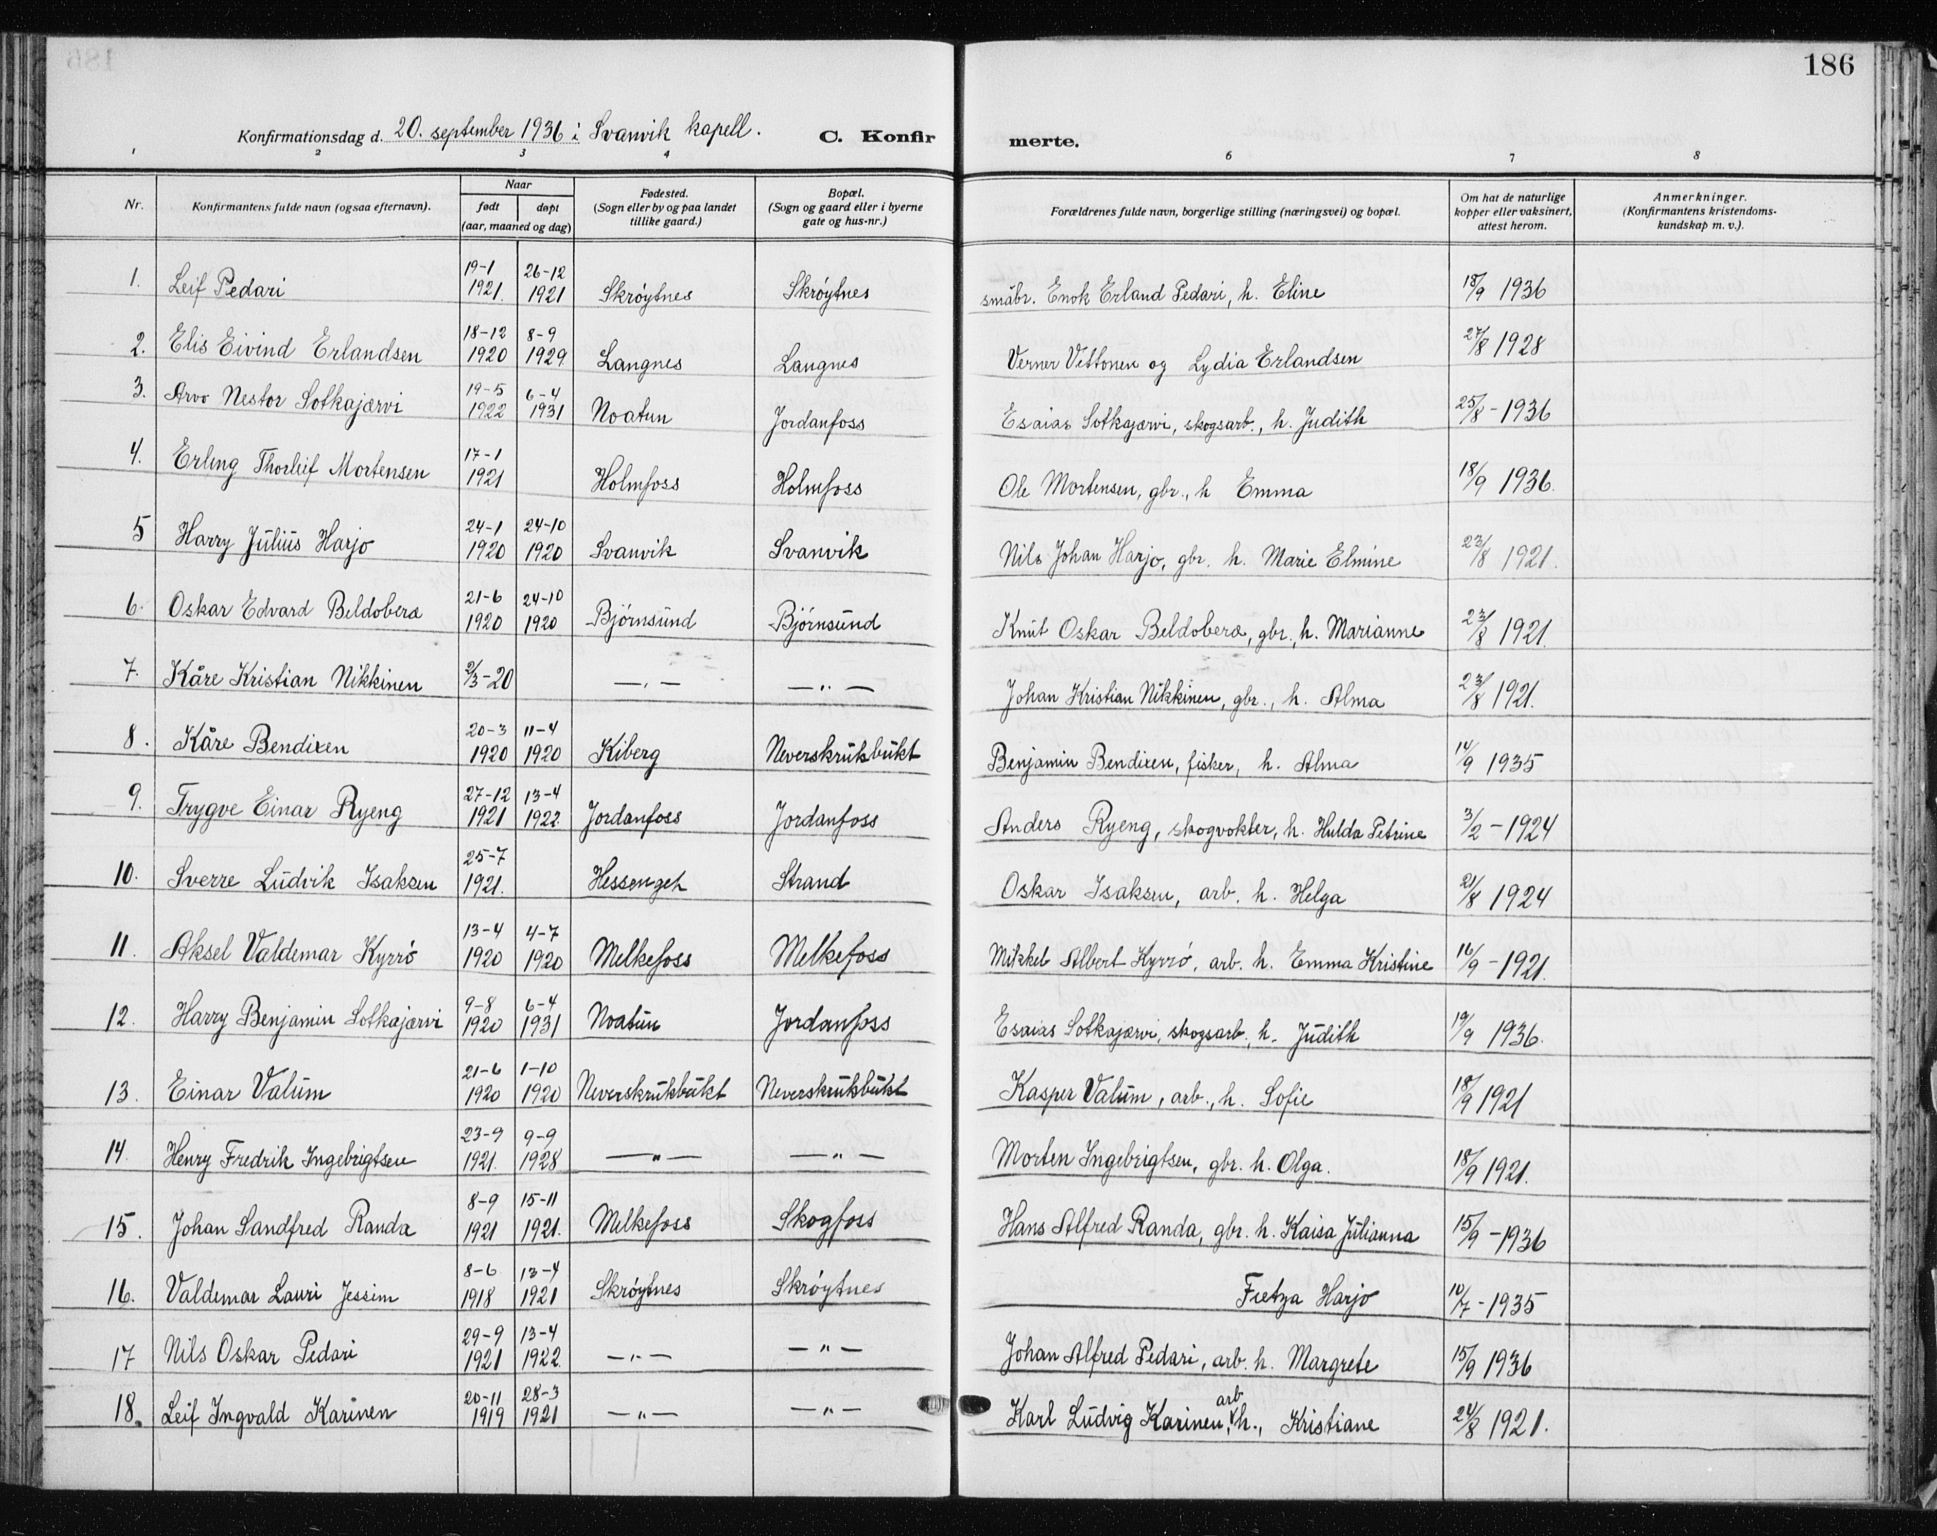 186
Konfirmationsdag d. 20. september 1936 i Svanvik kapell. C. Konfirmerte.
1 2 3 4 6 7 8
Nr. Konfirmantens fulde navn (ogsaa efternavn). Naar født døpt (aar, maaned og dag) Fødested. (Sogn eller by og paa landet tillike gaard.) Bopæl. (Sogn og gaard eller i byerne gate og hus-nr.) Forældrenes fulde navn, borgerlige stilling (næringsvei) og bopæl. Om hat de naturlige kopper eller vaksinert, attest herom. Anmerkninger. (Konfirmantens kristendoms-kundskap m. v.).
1. Leif Pedari 19-1 1921. 26-12 1921 Skrøytnes Skrøytnes småbr. Enok Erland Pedari, h. Eline 18/9 1936
2. Elis Eivind Erlandsen 18-12 1920 8-9 1929 Langnes Langnes Verner Vittonen og Lydia Erlandsen 27/8 1928
3. Arvo Nestor Sotkajærvi 19-5 1922 6-4 1931 Noatun Jordanfoss Esaias Sotkajærvi, skogsarb., h. Judith 25/8-1936
4. Erling Thorleif Mortensen 17-1 1921 Holmfoss Holmfoss Ole Mortensen, gbr., h Emma 18/9 1936.
5 Harry Julius Harjo 24-1 1920 24-10 1920 Svanvik Svanvik Nils Johan Harjo, gbr. h. Marie Elmine 23/8 1921.
6. Oskar Edvard Beldobera 21-6 1920 24-10 1920 Bjørnsund Bjørnsund Knut Oskar Beldobera, gbr., h. Marianne 23/8 1921.
7. Kåre Kristian Nikkinen 2/3-20 —„— —„— Johan Kristian Nikkinen, gbr., h. Alma 23/8 1921.
8. Kåre Bendixen 20-3 1920 11-4 1920 Kiberg Neverskrukbukt Benjamin Bendixen, fisker, h. Alma 14/9 1935
9. Trygve Einar Ryeng 27-12 1921 13-4 1922 Jordanfoss Jordanfoss Anders Ryeng, skogvokter, h. Hulda Petrine 3/2-1924
10. Sverre Ludvik Isaksen 25-7 1921. Hessenget Strand Oskar Isaksen, arb. h. Helga 21/8 1924
11. Aksel Valdemar Kyrrö 13-4 1920 4-7 1920 Melkefoss Melkefoss Mikkel Albert Kyrrö, arb. h. Emma Kristine 16/9-1921.
12. Harry Benjamin Sotkajærvi 9-8 1920 6-4 1931 Noatun Jordanfoss Esaias Sotkajærvi, skogsarb., h. Judith 19/9 1936.
13. Einar Valum 21-6 1920 1-10 1920 Neverskrukbukt Neverskrukbukt Kasper Valum, arb., h. Sofie 18/9 1921
14. Henry Fredrik Ingebrigtsen 23-9 1921. 9-9 1928 —„— —„— Morten Ingebrigtsen, gbr. h. Olga. 18/9 1921.
15. Johan Sandfred Randa 8-9 1921 15-11 1921. Melkefoss Skogfoss Hans Alfred Randa, gbr. h. Kaisa Julianna 15/9-1936
16. Valdemar Lauri Jessim 8-6 1918 13-4 1921 Skrøytnes Skrøytnes Harjo 10/7-1935
17 Nils Oskar Pedari 29-9 1921 13-4 1922. —„— —„— Johan Alfred Pedari, arb. h. Margrete 15/9 1936
18. Leif Ingvald Karinen 20-11 1919 28-3 1921 —„— —„— Karl Ludvig Karinen, arb h., Kristiane 24/8 1921.